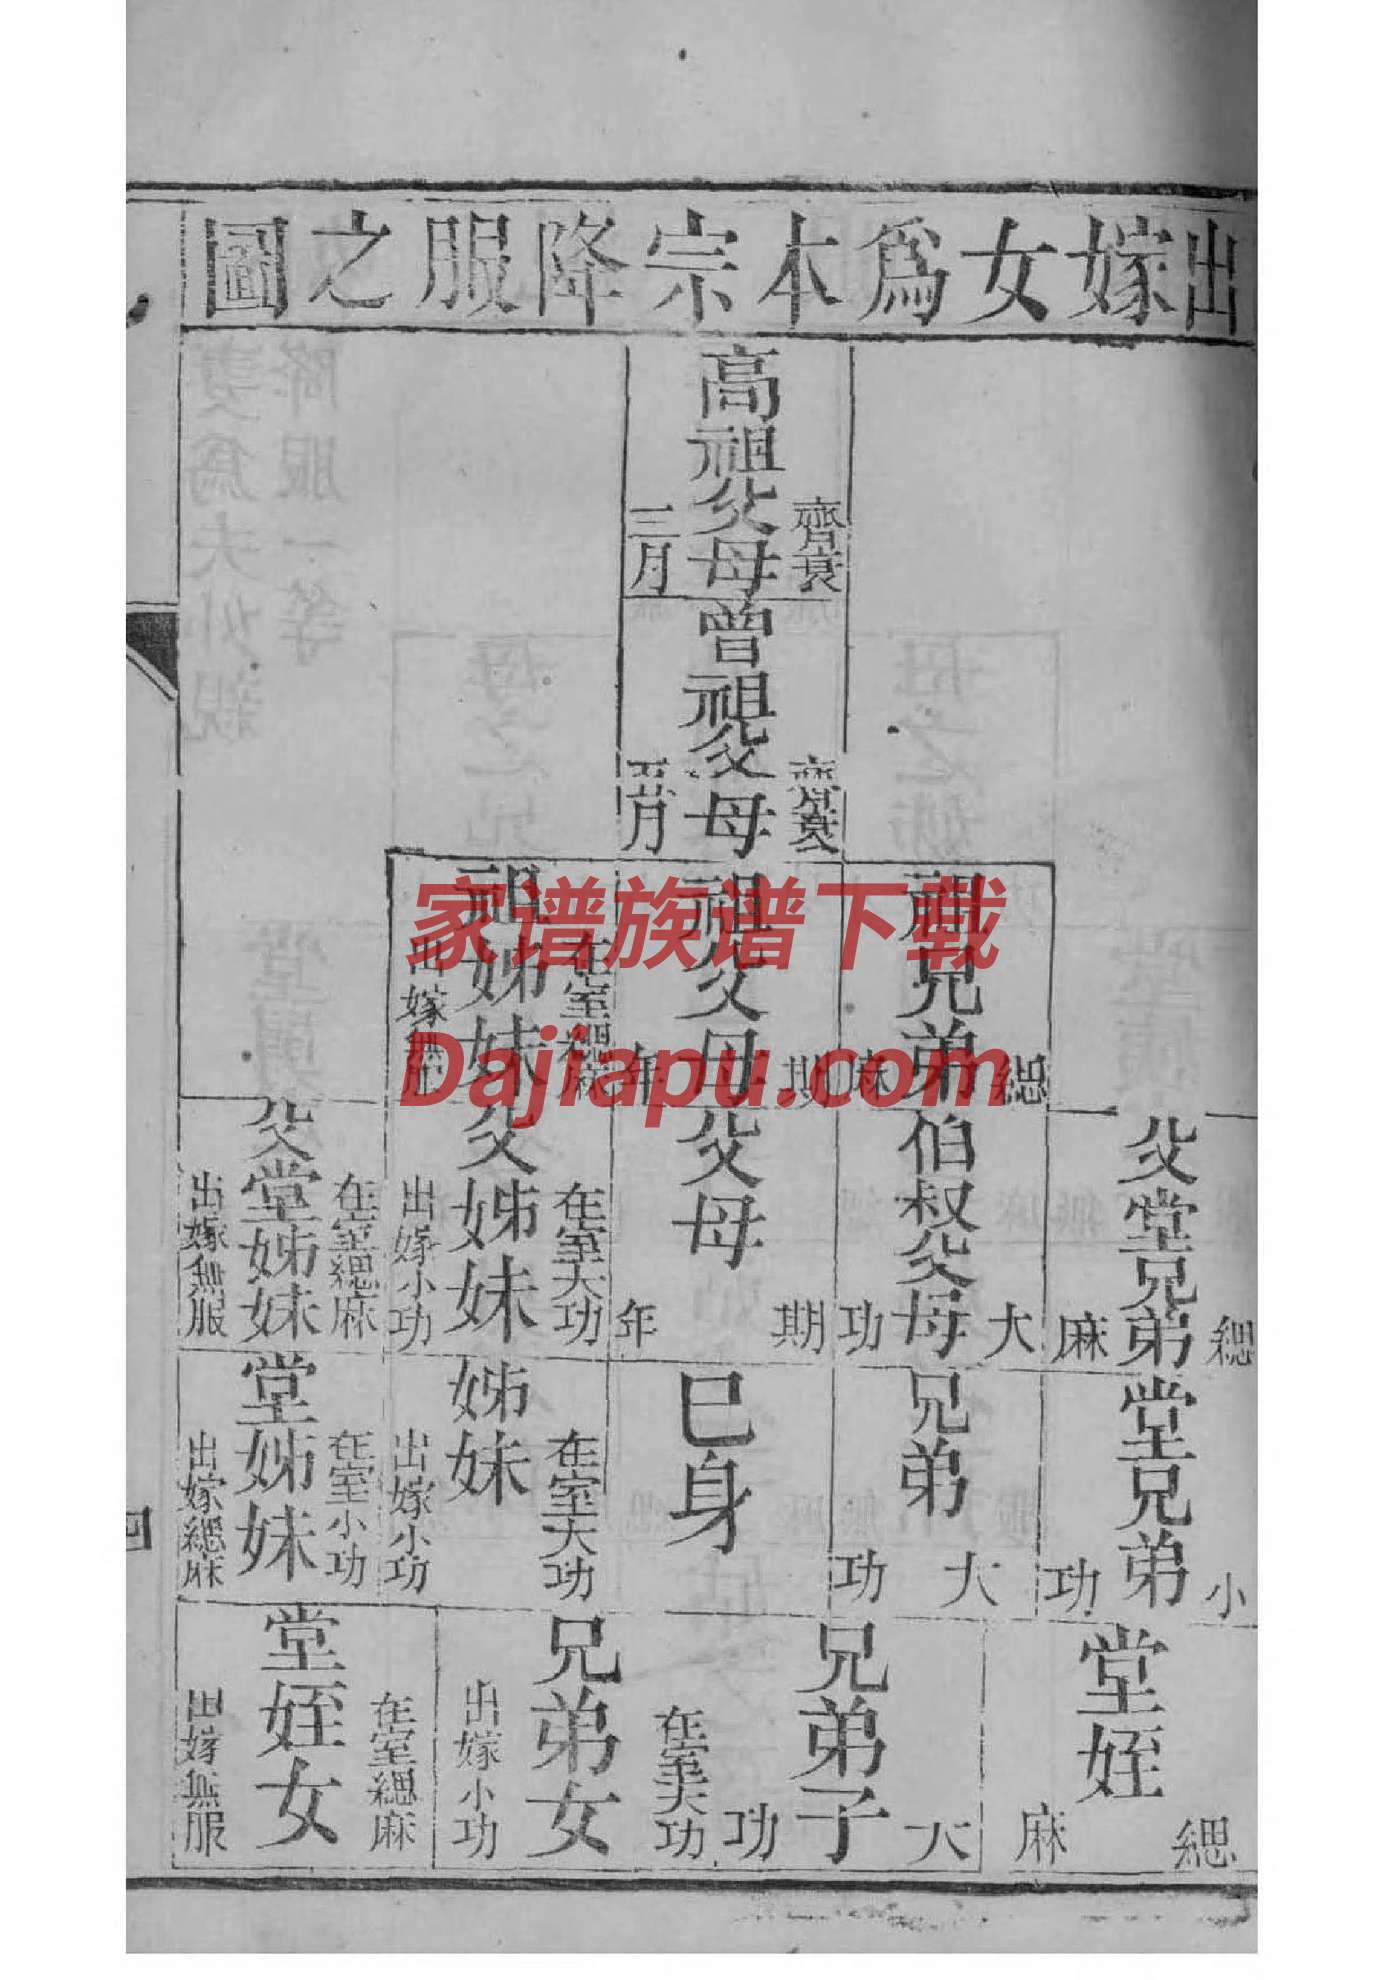 出嫁女爲本宗降服之圖
高祖父母
齊衰
三月
曾祖父母
齊衰
五月
祖兄弟
緦麻
祖父母
期年
祖姊妹
在室緦麻
出嫁無
父堂兄弟
緦麻
伯叔父母
大功
父母
期年
父姊妹
在室大功
出嫁小功
父堂姊妹
在室緦麻
出嫁無服
堂兄弟
小功
兄弟
大功
己身
姊妹
在室大功
出嫁小功
堂姊妹
在室小功
出嫁緦麻
堂姪
緦麻
兄弟子
大功
兄弟女
在室大功
出嫁小功
堂姪女
在室緦麻
出嫁無服
四
家谱族谱下载
Dajiapu.com